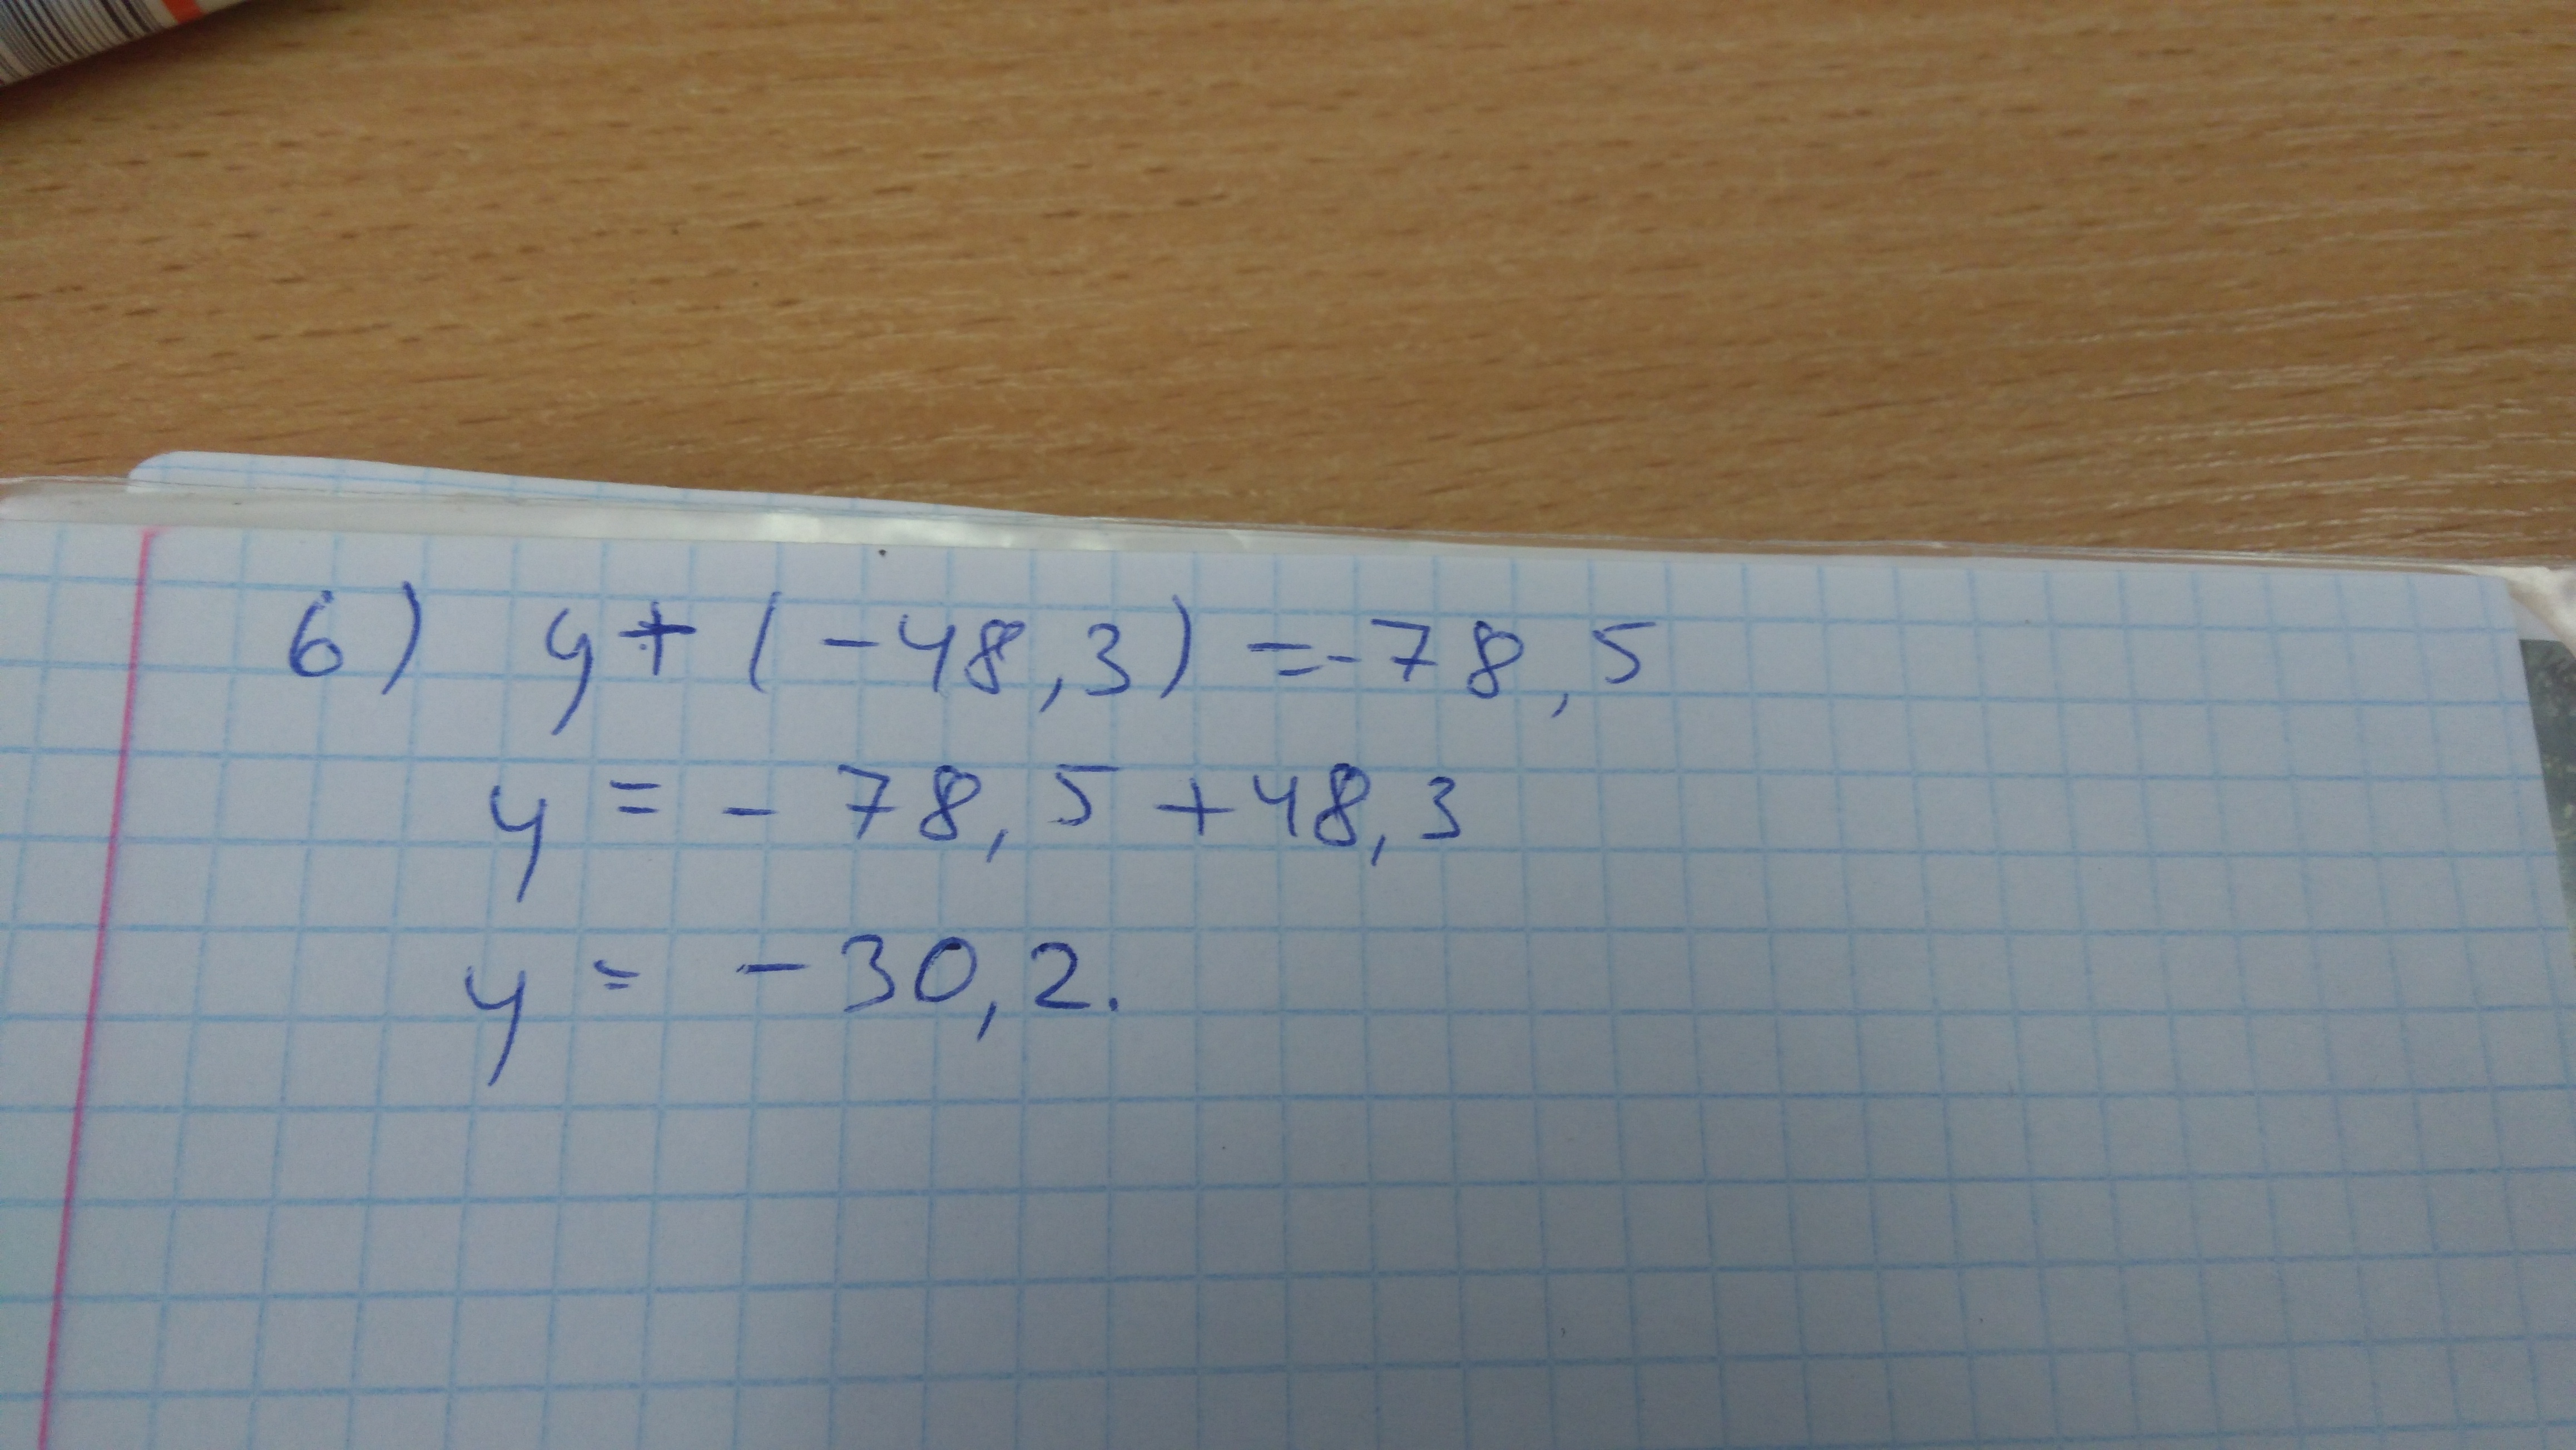 6) y + (-48,3) = -78,5
y = - 78,5 + 48,3
y = - 30,2.